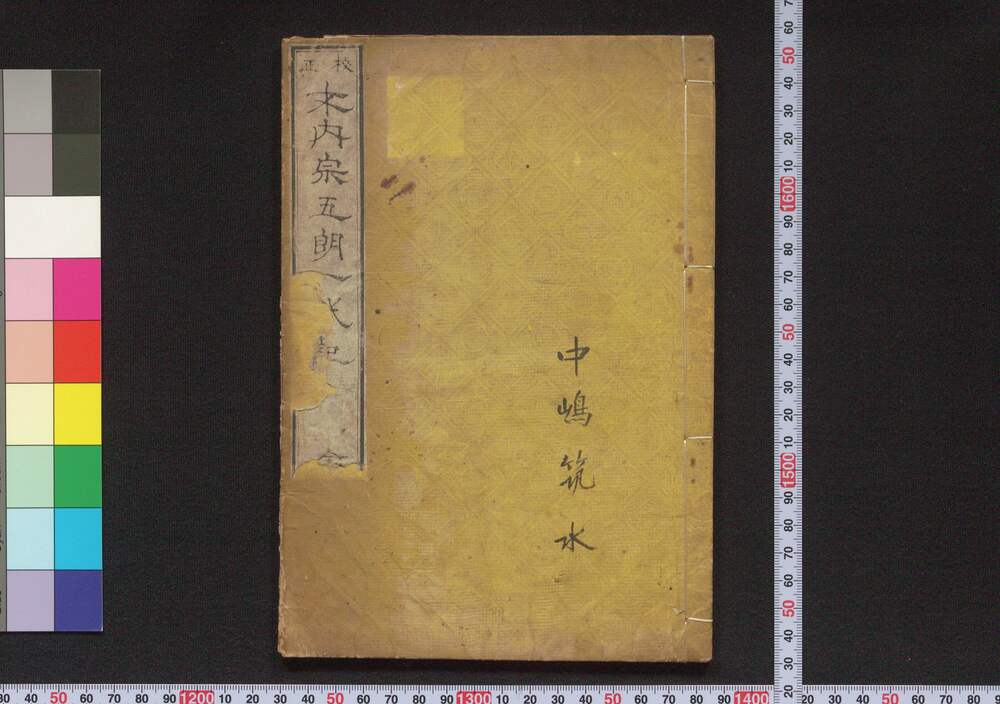 校正
木内宗五朗一代記
全
中嶋筑水
60 50 40 30 20 10 1600 90 80 70 60 50 40 30 20 10 1500 90 80 70 60 50 40 30 20
30 40 50 60 70 80 90 1200 10 20 30 40 50 60 70 80 90 1300 10 20 30 40 50 60 70 80 90 1400
20 30 40 50 60 70 80 90